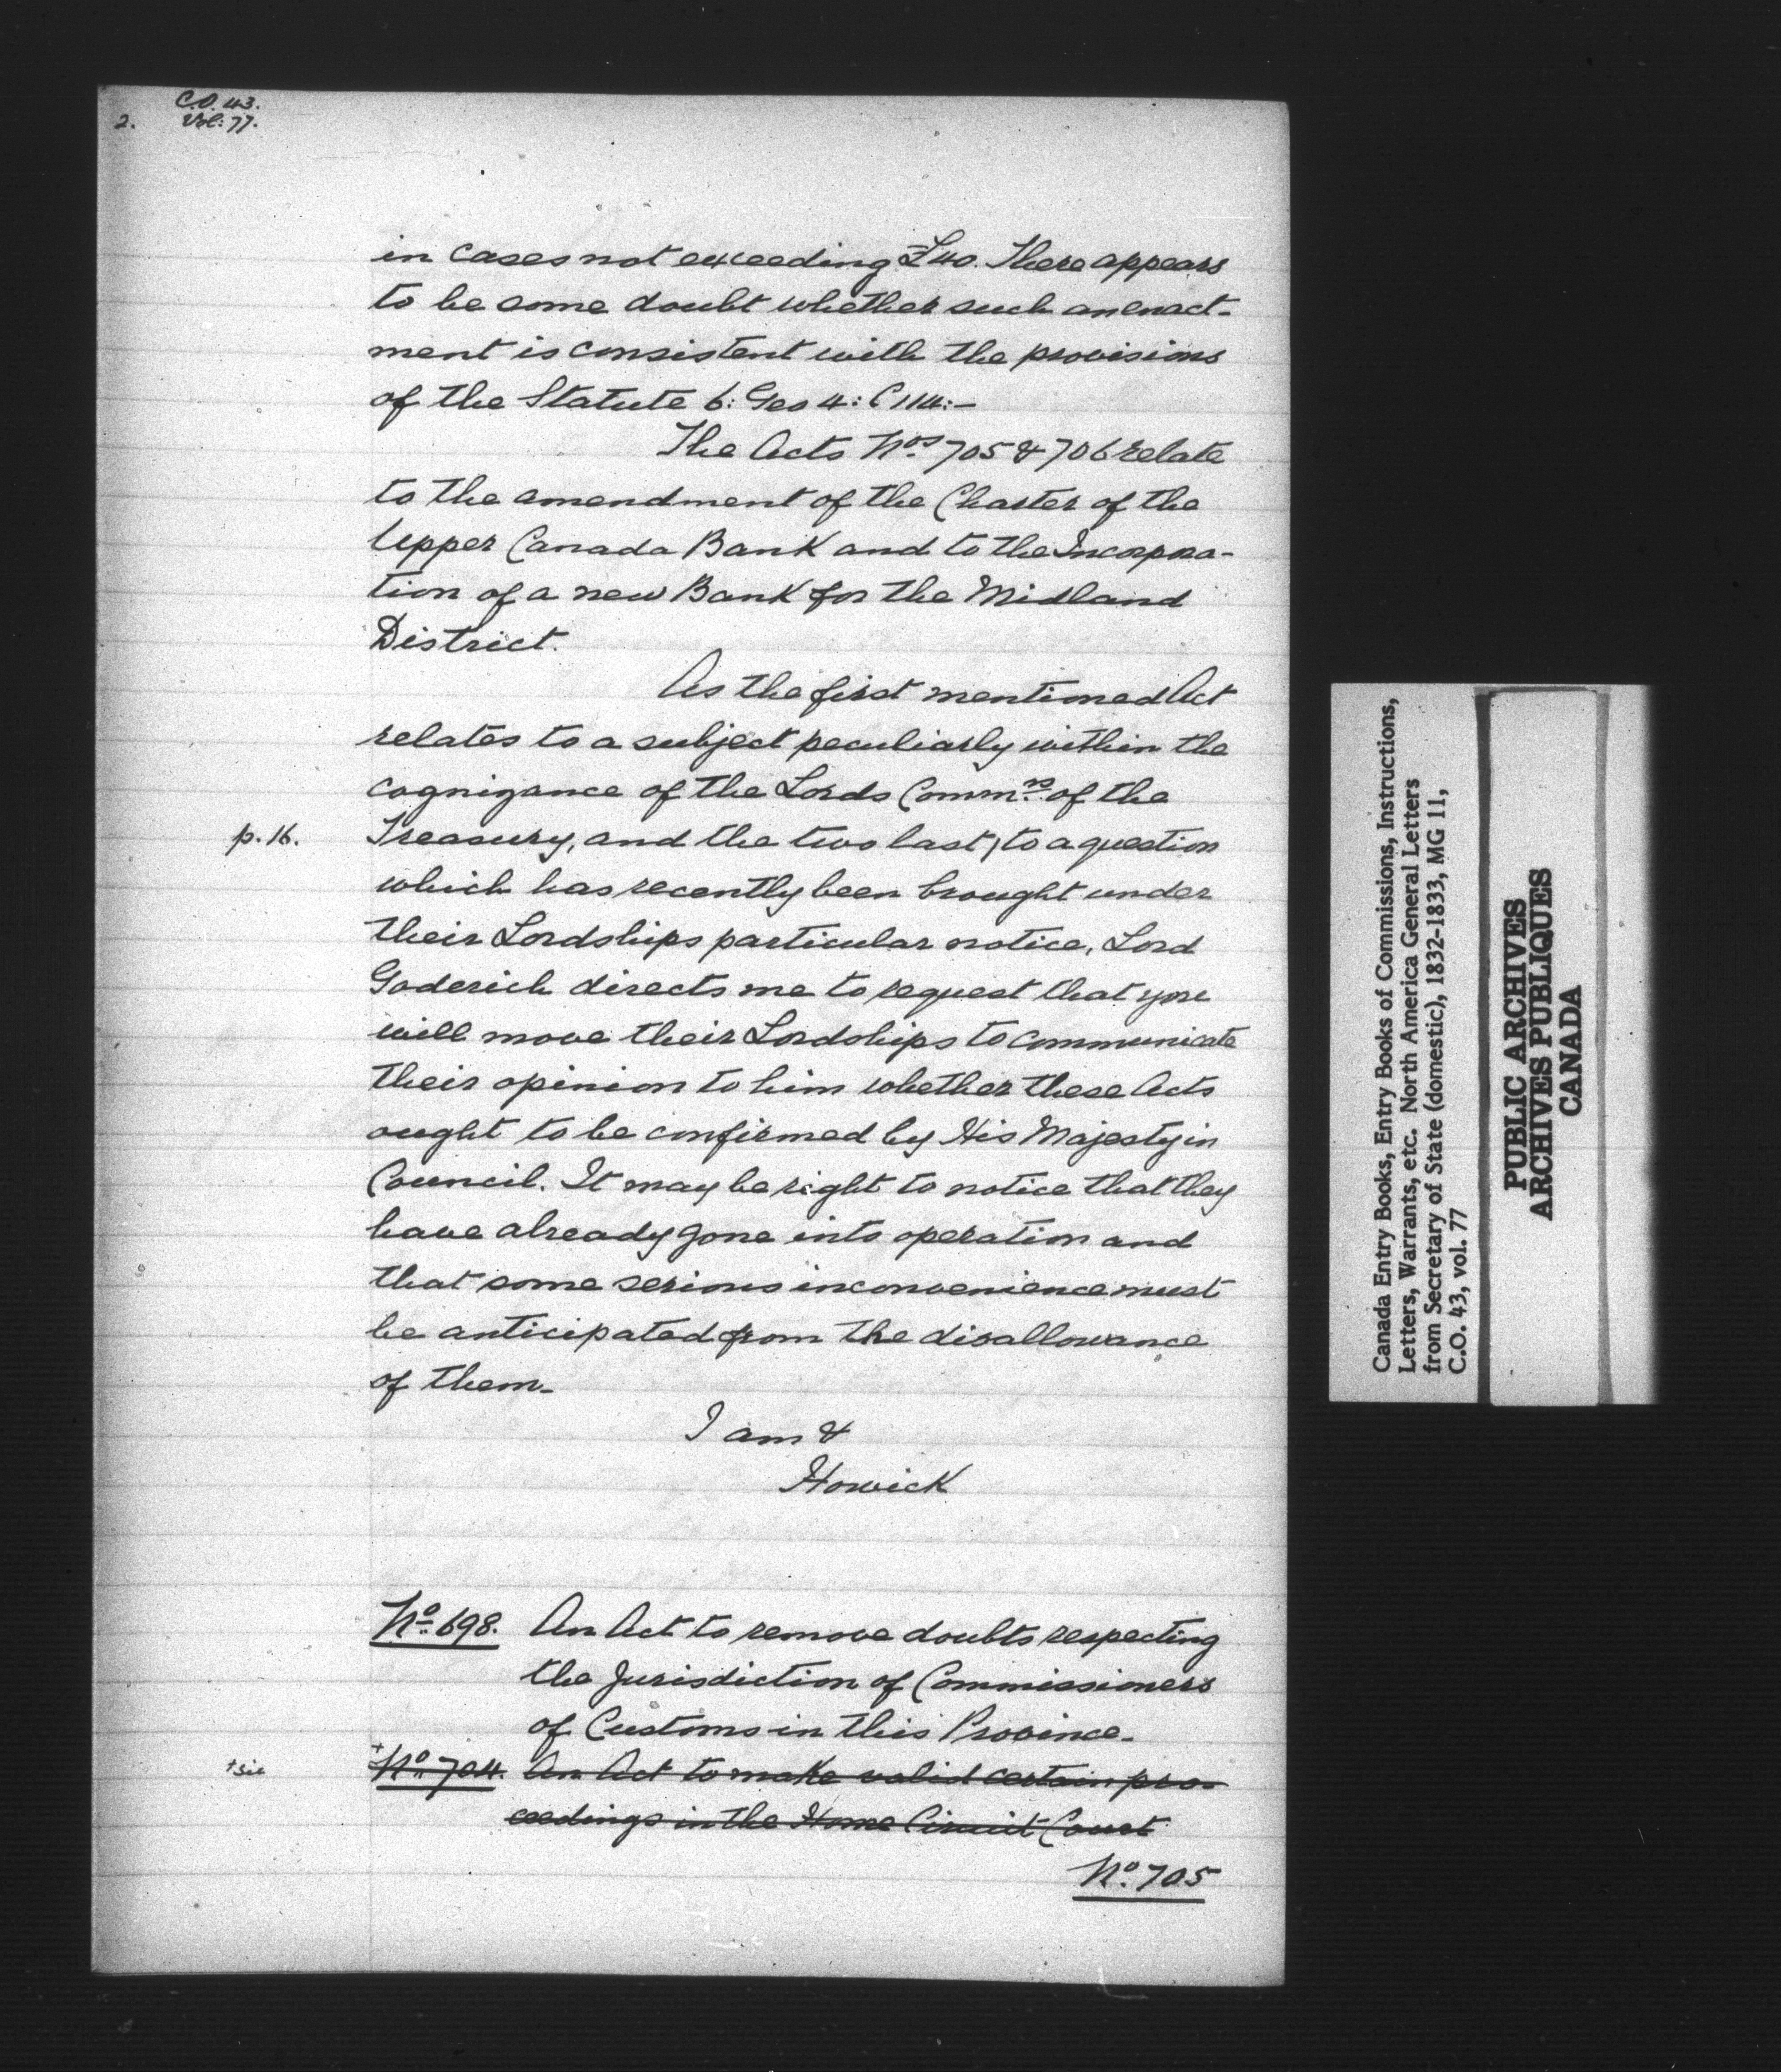 C.O. 43.
2. Vol: 77.
in cases not exceeding £40. There appears
to be some doubt whether such an enact-
ment is consistent with the provisions
of the Statute 6: Geo 4: C 114:-
The Acts Nos 705 & 706 relate
to the amendment of the Charter of the
Upper Canada Bank and to the Incorpora-
tion of a new Bank for the Midland
District.
As the first mentioned Act
relates to a subject peculiarly within the
cognizance of the Lords Commrs of the
p. 16. Treasury, and the two last, to a question
which has recently been brought under
their Lordships particular notice, Lord
Goderich directs me to request that you
will move their Lordships to communicate
their opinion to him whether these Acts
ought to be confirmed by His Majesty in
Council. It may be right to notice that they
have already gone into operation and
that some serious inconvenience must
be anticipated from the disallowance
of them.
I am &
Howick
No. 698. An Act to remove doubts respecting
the Jurisdiction of Commissioners
of Customs in this Province.
+sic +No. 704. An Act to make valid certain pro-
ceedings in the Home Circuit Court
No. 705
Canada Entry Books, Entry Books of Commissions, Instructions,
Letters, Warrants, etc. North America General Letters
from Secretary of State (domestic), 1832-1833, MG 11,
C.O. 43, vol. 77
PUBLIC ARCHIVES
ARCHIVES PUBLIQUES
CANADA